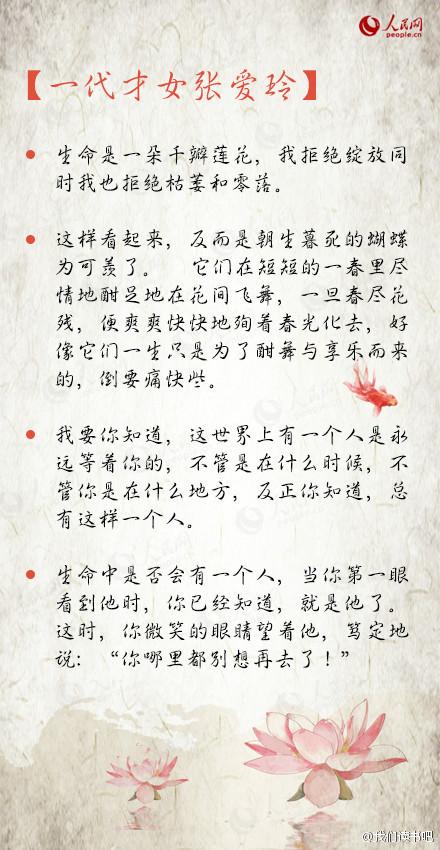 人民网
people.cn
【一代才女张爱玲】
• 生命是一朵千瓣莲花，我拒绝绽放同
时我也拒绝枯萎和零落。
• 这样看起来，反而是朝生暮死的蝴蝶
为可羡了。 它们在短短的一春里尽
情地酣足地在花间飞舞，一旦春尽花
残，便爽爽快快地殉着春光化去，好
像它们一生只是为了酣舞与享乐而来
的，倒要痛快些。
• 我要你知道，这世界上有一个人是永
远等着你的，不管是在什么时候，不
管你是在什么地方，反正你知道，总
有这样一个人。
• 生命中是否会有一个人，当你第一眼
看到他时，你已经知道，就是他了。
这时，你微笑的眼睛望着他，笃定地
说：“你哪里都别想再去了！”
@我们读书吧